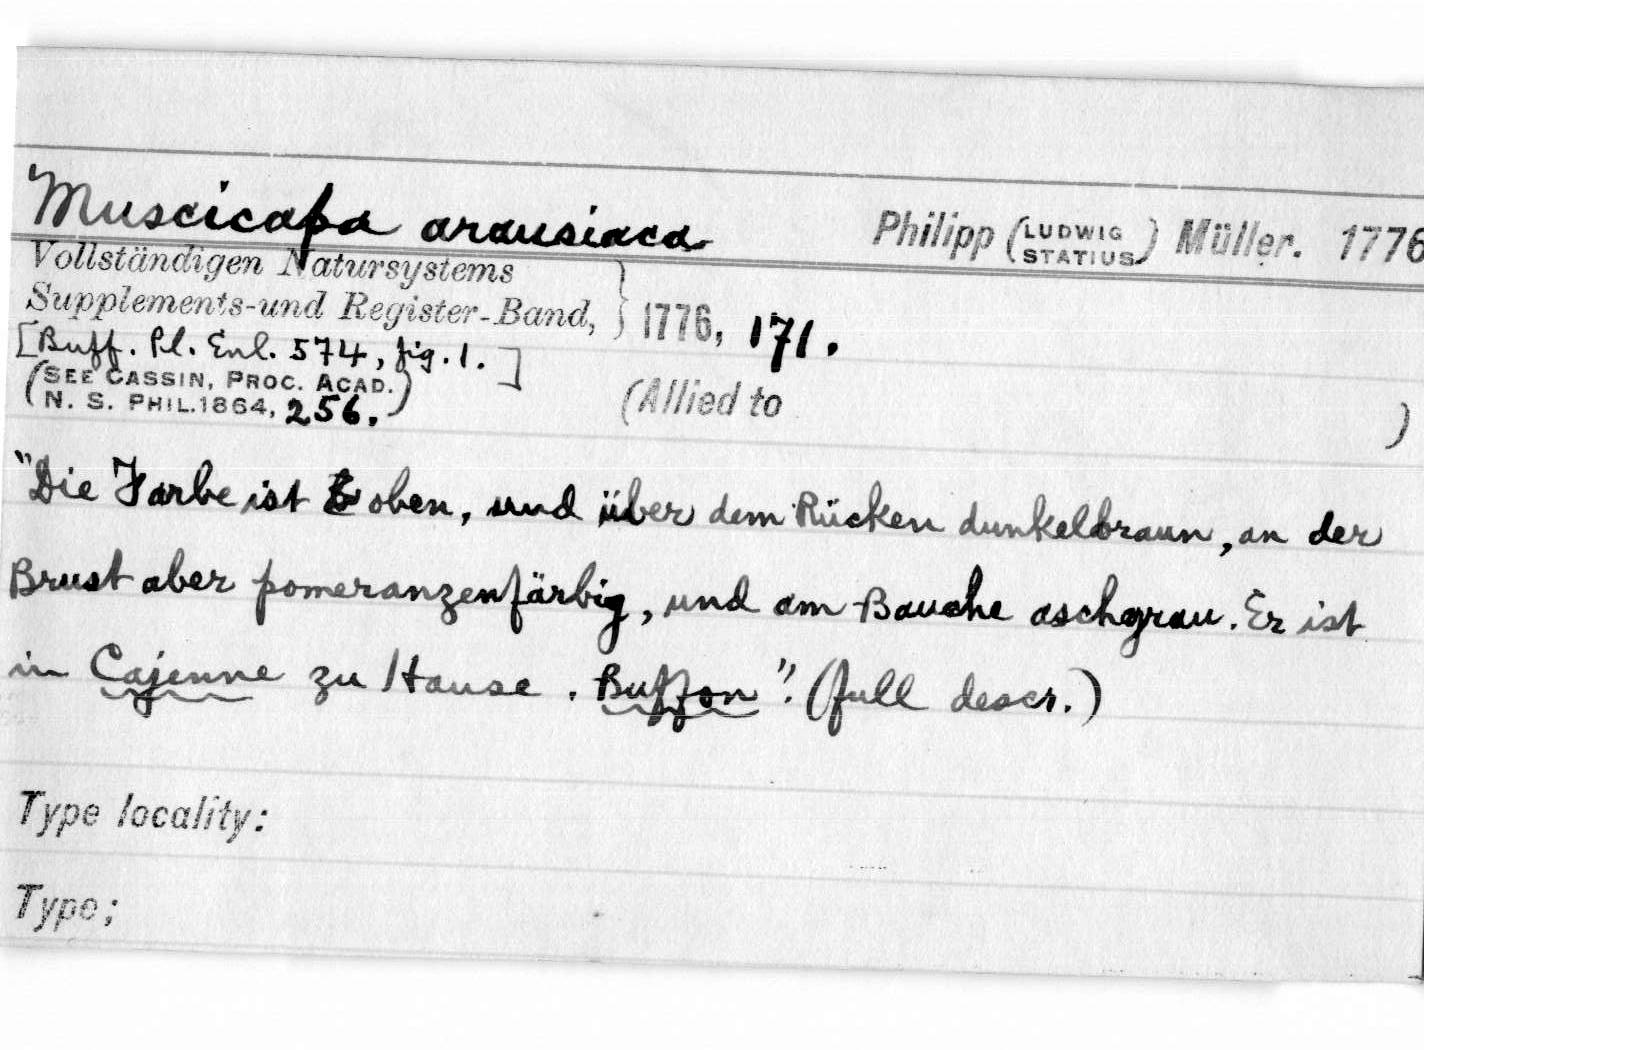 Muscicapa arausiaca Philipp (LUDWIG STATIUS) Müller. 1776
Vollständigen Natursystems
Supplements-und Register-Band, } 1776, 171.
[Buff. Pl. Enl. 574, fig. 1.]
(SEE CASSIN, PROC. ACAD.
N. S. PHIL. 1864, 256.) (Allied to )
"Die Farbe ist oben, und über dem Rücken dunkelbraun, an der
Brust aber pomeranzenfärbig, und am Bauche aschgrau. Er ist
in Cajenne zu Hause. Buffon". (full descr.)
Type locality:
Type;